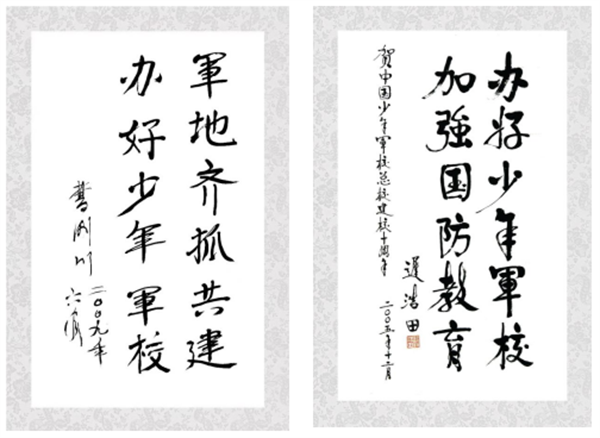 軍地齐抓共建
办好少年軍校
二〇〇九年
曹刚川
办好少年軍校
加強国防教育
遲浩田
二〇〇五年十二月
贺中国少年軍校总校建校十周年